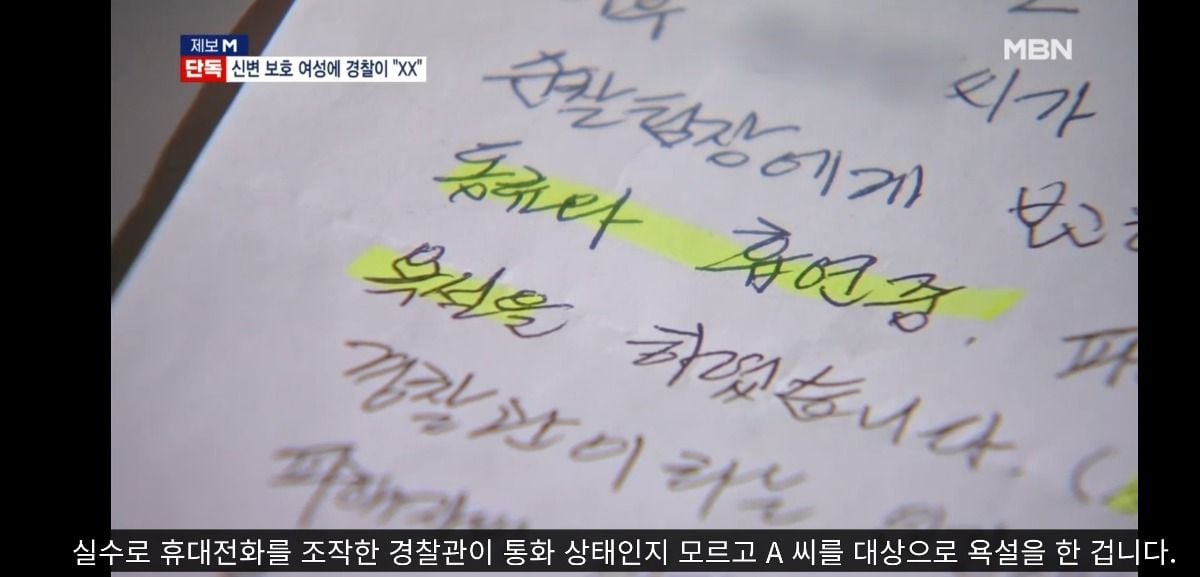 제보M
단독 신변 보호 여성에 경찰이 "XX"
MBN
씨가
순찰팀장에게 보고
동료와 흡연중.
욕설을 하였습니다. (
경찰관이 하는
실수로 휴대전화를 조작한 경찰관이 통화 상태인지 모르고 A 씨를 대상으로 욕설을 한 겁니다.